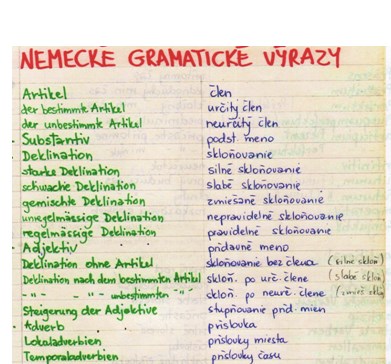 NEMECKÉ GRAMATICKÉ VÝRAZY
Artikel člen
der bestimmte Artikel určitý člen
der unbestimmte Artikel neurčitý člen
Substantiv podst. meno
Deklination skloňovanie
starke Deklination silné skloňovanie
schwache Deklination slabé skloňovanie
gemischte Deklination zmiešané skloňovanie
unregelmässige Deklination nepravidelné skloňovanie
regelmässige Deklination pravidelné skloňovanie
Adjektiv prídavné meno
Deklination ohne Artikel skloňovanie bez člena (silné skloň)
Deklination nach dem bestimmten Artikel skloň. po urč. člene (slabé skloň
-"- -"- unbestimmten -"- skloň. po neurč. člene (zmieš. skloň
Steigerung der Adjektive stupňovanie príd. mien
Adverb príslovka
Lokaladverbien príslovky miesta
Temporaladverbien príslovky času